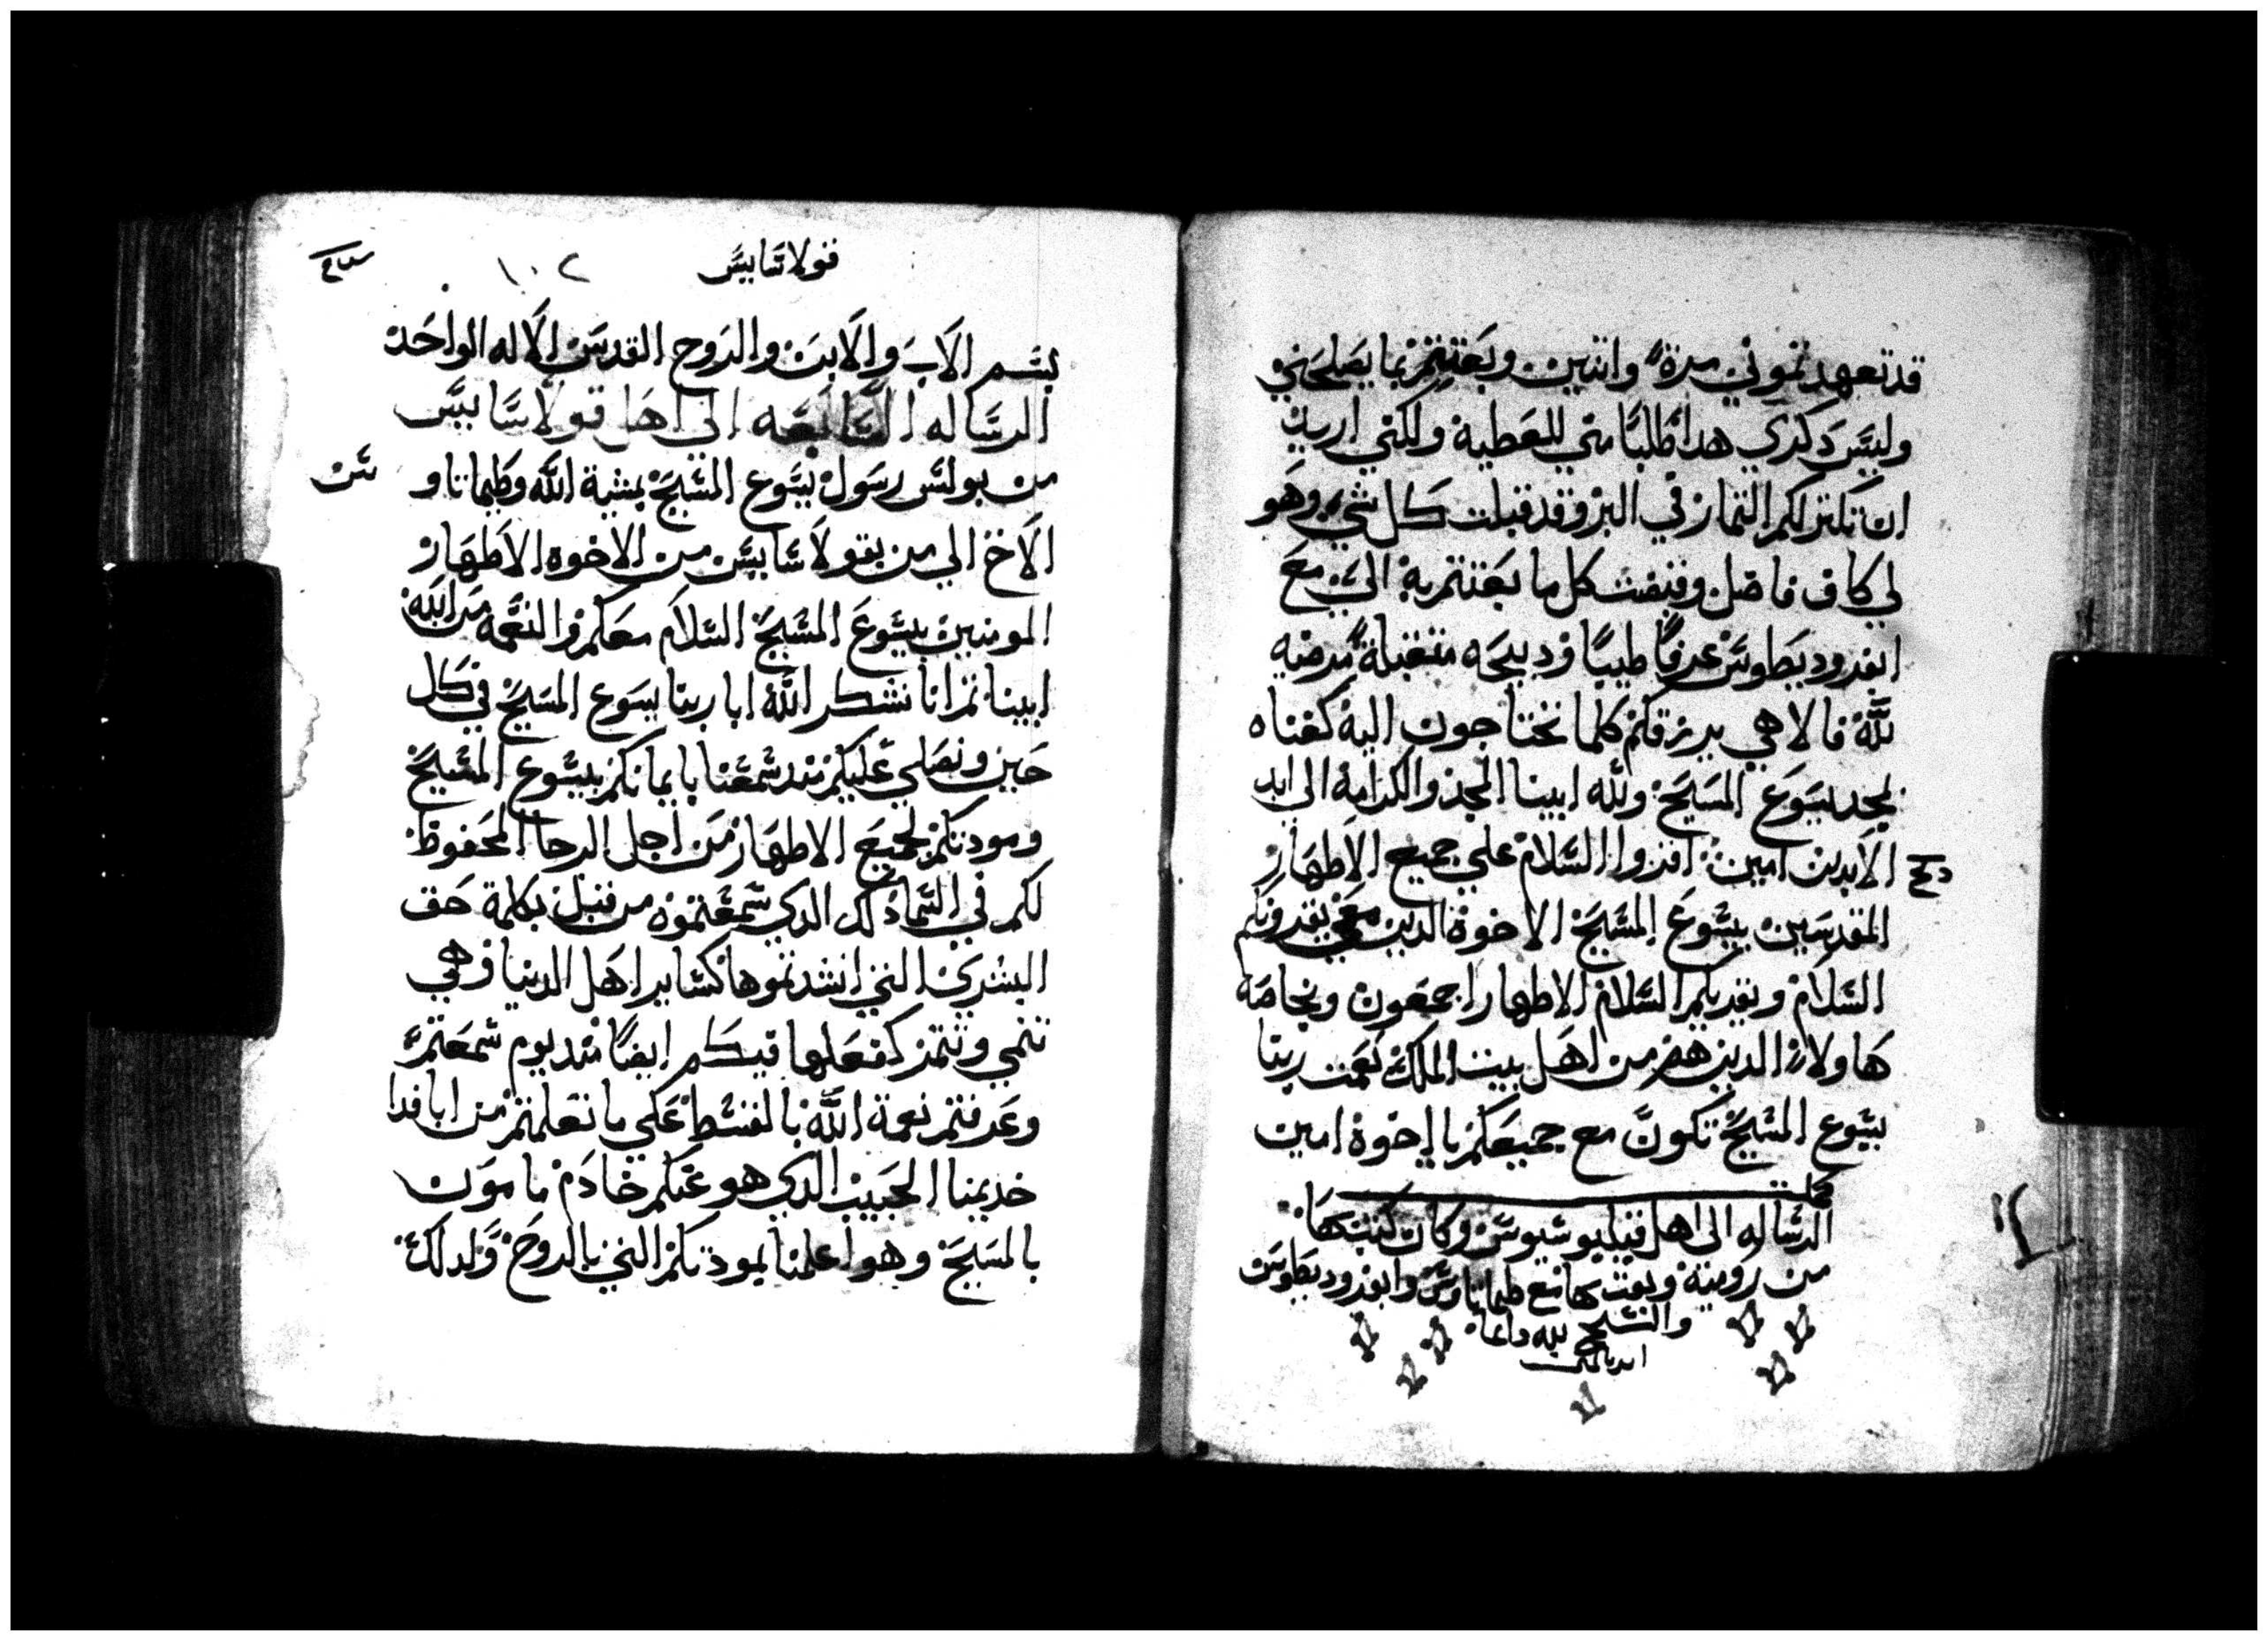 قد تعهدتموني مرة واتنين وبعتتم بما يصلحني
وليس دكري هدا طلبا مني للعطية ولكني اريد
ان تكتر لكم التمار في البر وقد قبلت كل شي وهو
لي كاف فاضل وقبضت كل ما بعتتم به الي مع
ابفروديطوس عرفا طيبا ودبيحه متقبلة مرضيه
لله فالاهي يرزقكم كلما تحتاجون اليه كغناه
لمجد يسوع المسيح ولله ابينا المجد والكرامة الي ابد
الابدين امين اقروا السلام علي جميع الاطهار
المقدسين بيسوع المسيح الاخوة الدين معي يقرونكم
السلام ويقريكم السلام الاطهار اجمعون وبخاصة
هاولاء الدين هم من اهل بيت الملك نعمت ربنا
يسوع المسيح تكون مع جميعكم يا اخوة امين
كملت
الرساله الى اهل فيليبوسيوس وكان كتبها
من رومية وبعت بها مع طيماتاوس وابفروديطوس
والسبح لله دايما
قولاسايس ١٠٢
بسم الاب والابن والروح القدس الاله الواحد
الرساله السابعه الي اهل قولاسايس
من بولس رسول يسوع المسيح بمشية الله وطيماتاو
الاخ الي من بقولاسايس من الاخوه الاطهار
المومنين بيسوع المسيح السلام معكم والنعمه من الله
ابينا تم انا نشكر الله ابا ربنا يسوع المسيح في كل
حين ونصلي عليكم مند سمعنا بايمانكم بيسوع المسيح
ومودتكم لجميع الاطهار من اجل الرجا المحفوظ
لكم في السما دلك الدي سمعتموه من قبل بكلمة حق
البشرى التي انشدتموها كساير اهل الدنيا وهي
تنمي وتتمر كفعلها فيكم ايضا مند يوم سمعتم
وعرفتم نعمة الله بالقسط علي ما تعلمتم من ابافرا
خديمنا الحبيب الدي هو عنكم خادم مامون
بالمسيح وهو اعلمنا بمودتكم التي بالروح ولدلك